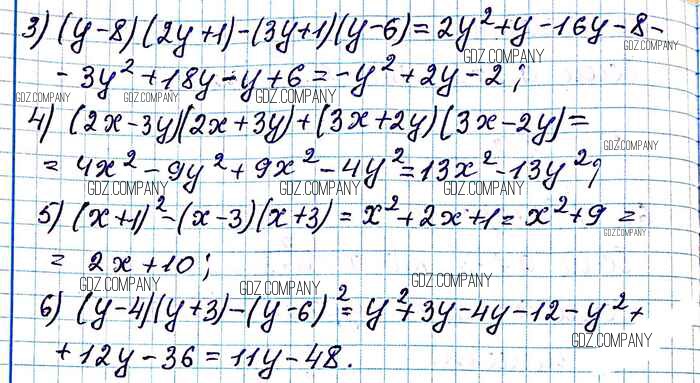 3) (y-8)(2y+1)-(3y+1)(y-6)=2y²+y-16y-8-
GDZ.COMPANY
GDZ.COMPANY
-3y²+18y-y+6=-y²+2y-2;
GDZ.COMPANY GDZ.COMPANY GDZ.COMPANY GDZ.COMPANY
4) (2x-3y)(2x+3y)+(3x+2y)(3x-2y)=
GDZ.COMPANY
=4x²-9y²+9x²-4y²=13x²-13y²;
GDZ.COMPANY GDZ.COMPANY GDZ.COMPANY
5) (x+1)²-(x-3)(x+3)=x²+2x+1=x²+9=
GDZ.COMPANY
=2x+10;
GDZ.COMPANY GDZ.COMPANY GDZ.COMPANY
6) (y-4)(y+3)-(y-6)²=y²+3y-4y-12-y²+
GDZ.COMPANY
+12y-36=11y-48.